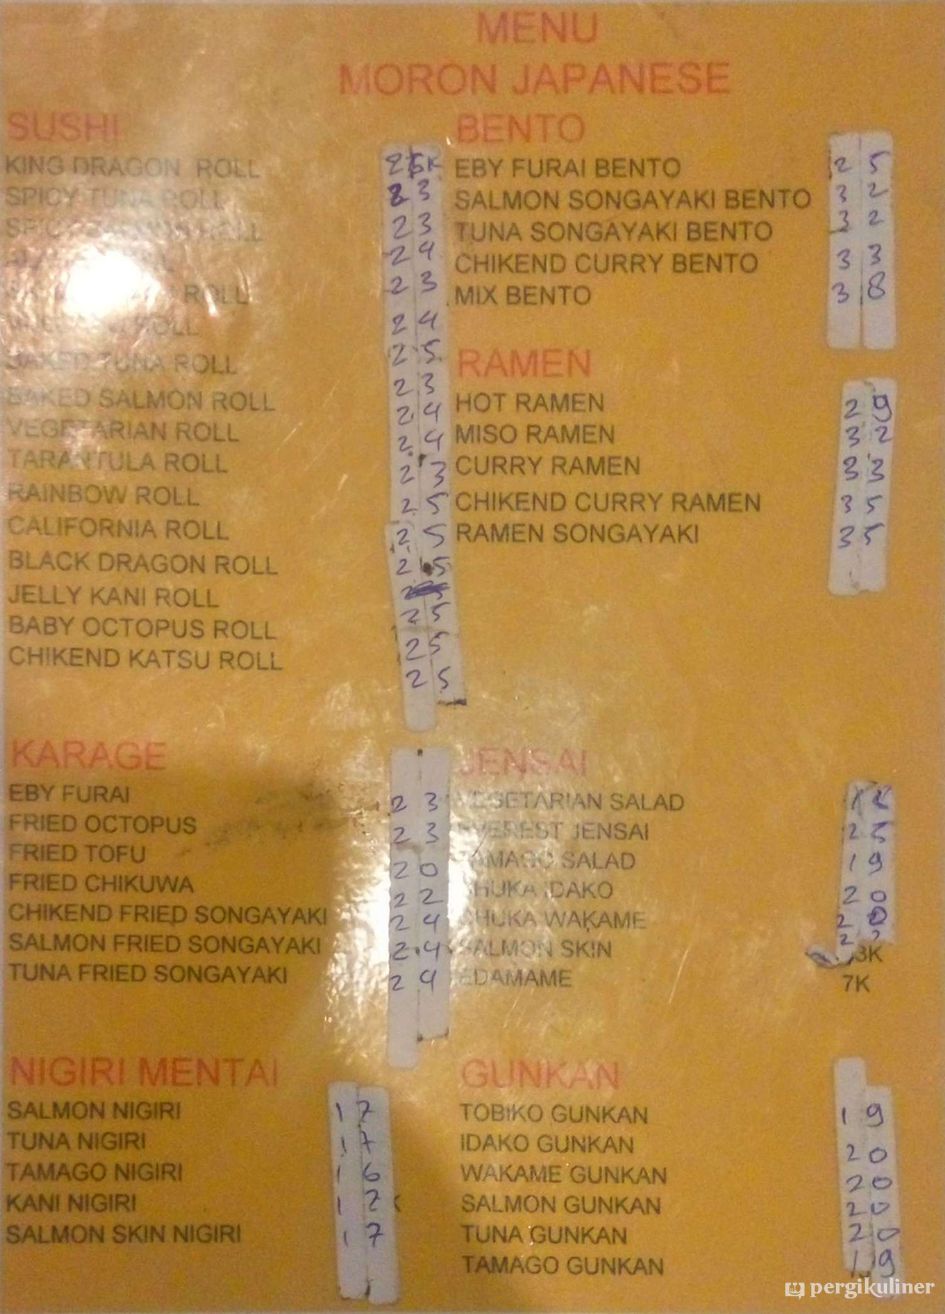 MENU
MORON JAPANESE
SUSHI
KING DRAGON ROLL 25K
SPICY TUNA ROLL 23
ROLL 23
24
ROLL 23
ROLL 24
BAKED TUNA ROLL 25
BAKED SALMON ROLL 23
VEGETARIAN ROLL 24
TARANTULA ROLL 24
RAINBOW ROLL 23
CALIFORNIA ROLL 25
BLACK DRAGON ROLL 25
JELLY KANI ROLL 25
BABY OCTOPUS ROLL 25
CHIKEND KATSU ROLL 25
25
BENTO
EBY FURAI BENTO 25
SALMON SONGAYAKI BENTO 32
TUNA SONGAYAKI BENTO 32
CHIKEND CURRY BENTO 33
MIX BENTO 38
RAMEN
HOT RAMEN 29
MISO RAMEN 32
CURRY RAMEN 33
CHIKEND CURRY RAMEN 35
RAMEN SONGAYAKI 35
KARAGE
EBY FURAI 23
FRIED OCTOPUS 23
FRIED TOFU 20
FRIED CHIKUWA 22
CHIKEND FRIED SONGAYAKI 24
SALMON FRIED SONGAYAKI 24
TUNA FRIED SONGAYAKI 24
JENSAI
VEGETARIAN SALAD
EVEREST JENSAI 25
TAMAGO SALAD 19
CHUKA IDAKO 20
CHUKA WAKAME 20
SALMON SKIN
EDAMAME 7K
NIGIRI MENTAI
SALMON NIGIRI 17
TUNA NIGIRI 17
TAMAGO NIGIRI 16
KANI NIGIRI 12
SALMON SKIN NIGIRI 17
GUNKAN
TOBIKO GUNKAN 19
IDAKO GUNKAN 20
WAKAME GUNKAN 20
SALMON GUNKAN 20
TUNA GUNKAN 20
TAMAGO GUNKAN 19
pergikuliner